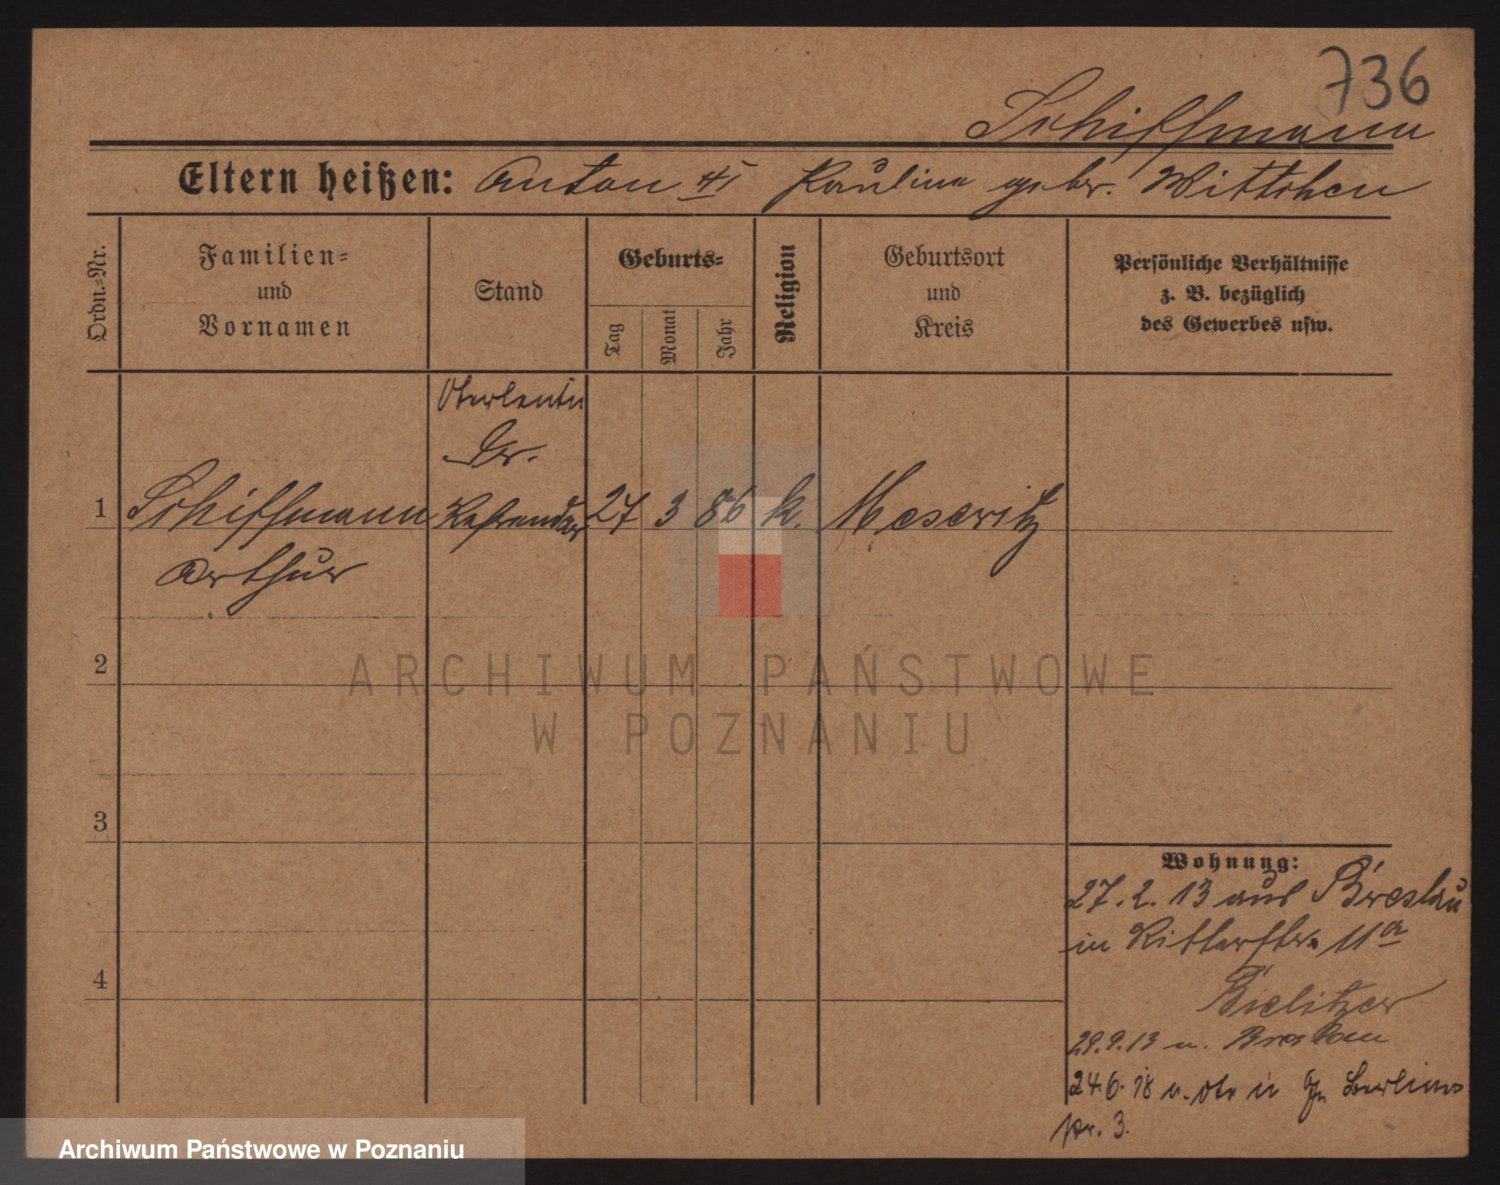 736
Schiffmann
Eltern heißen: Anton u Pauline geb. Wittchen
Ordn.-Nr.
Familien-
und
Vornamen
Stand
Geburts-
Tag
Monat
Jahr
Religion
Geburtsort
und
Kreis
Persönliche Verhältnisse
z. B. bezüglich
des Gewerbes usw.
Dr.
1 Schiffmann Referendar 27 3 86 k. Meseritz
Arthur
2
3
4
Wohnung:
27.2.13 aus Breslau
in Ritterstr. 11a
Bielitzer
29.9.13 n. Breslau
24.6.18 v. Berliner
str. 3.
ARCHIWUM PAŃSTWOWE
W POZNANIU
Archiwum Państwowe w Poznaniu